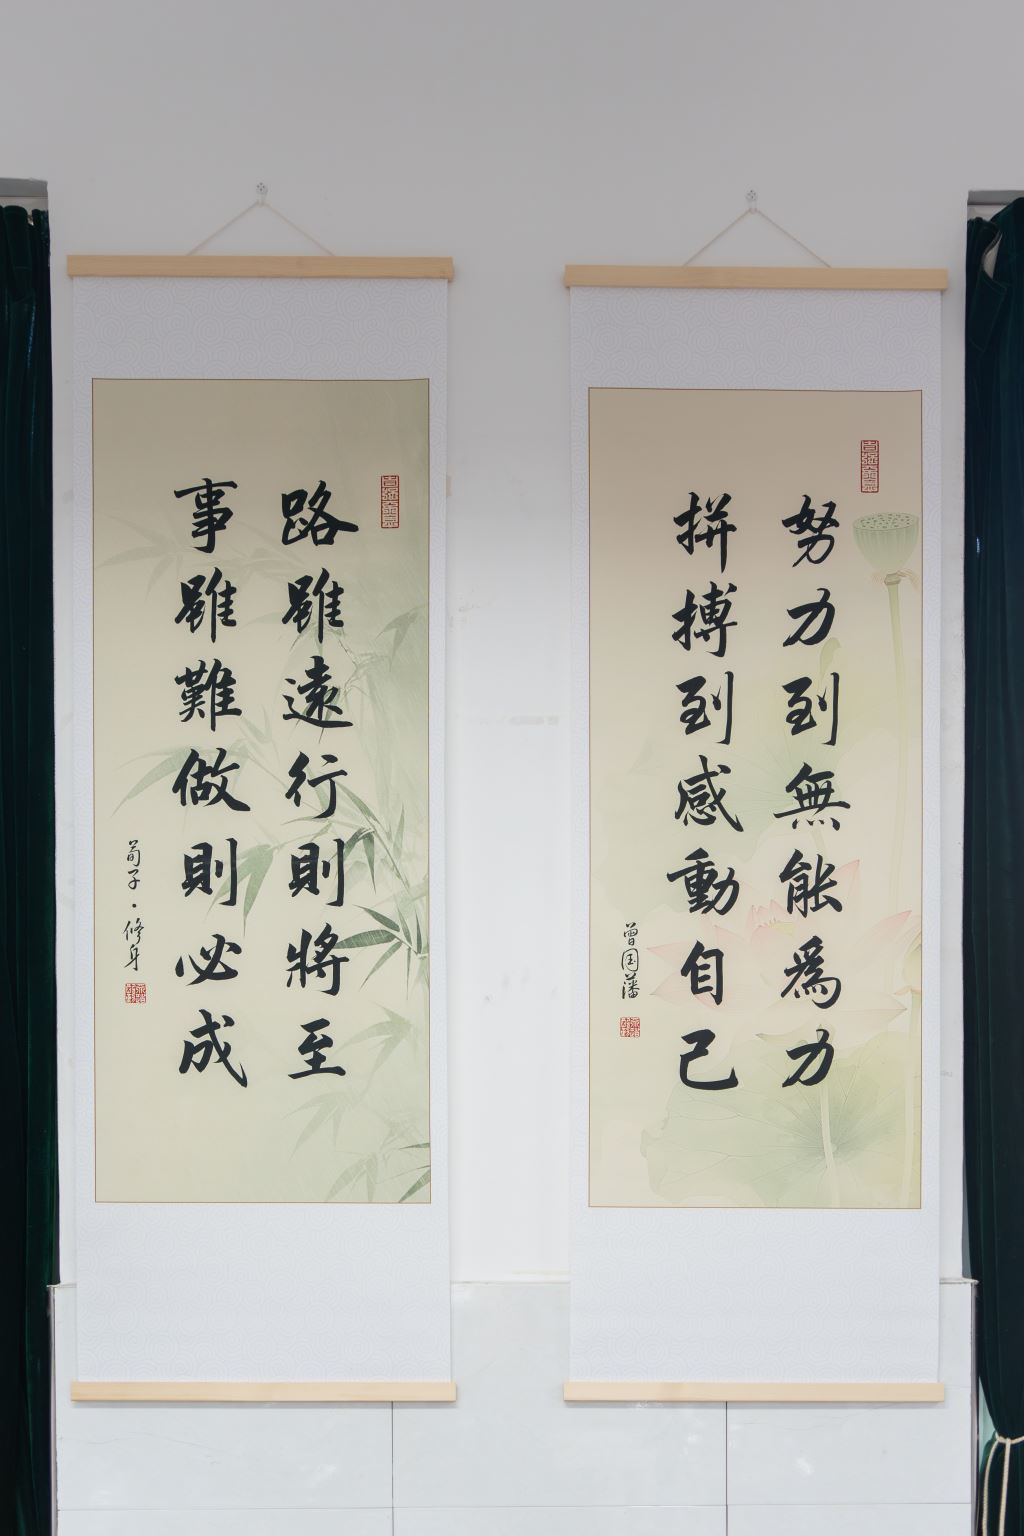 努力到無能為力
拼搏到感動自己
曾国藩
路雖遠行則將至
事雖難做則必成
荀子·修身